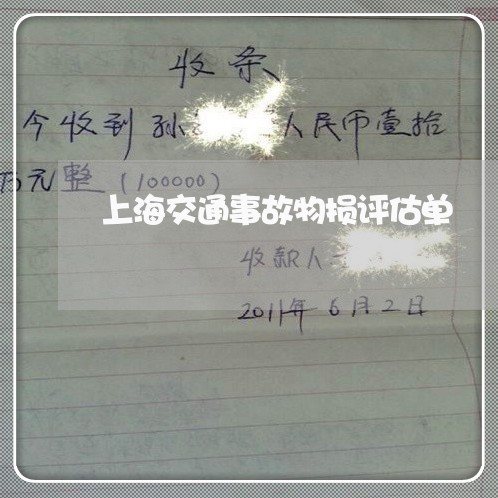 收条
今收到孙 人民币壹拾
万元整(100000)
上海交通事故物损评估单
收款人
2011年6月2日